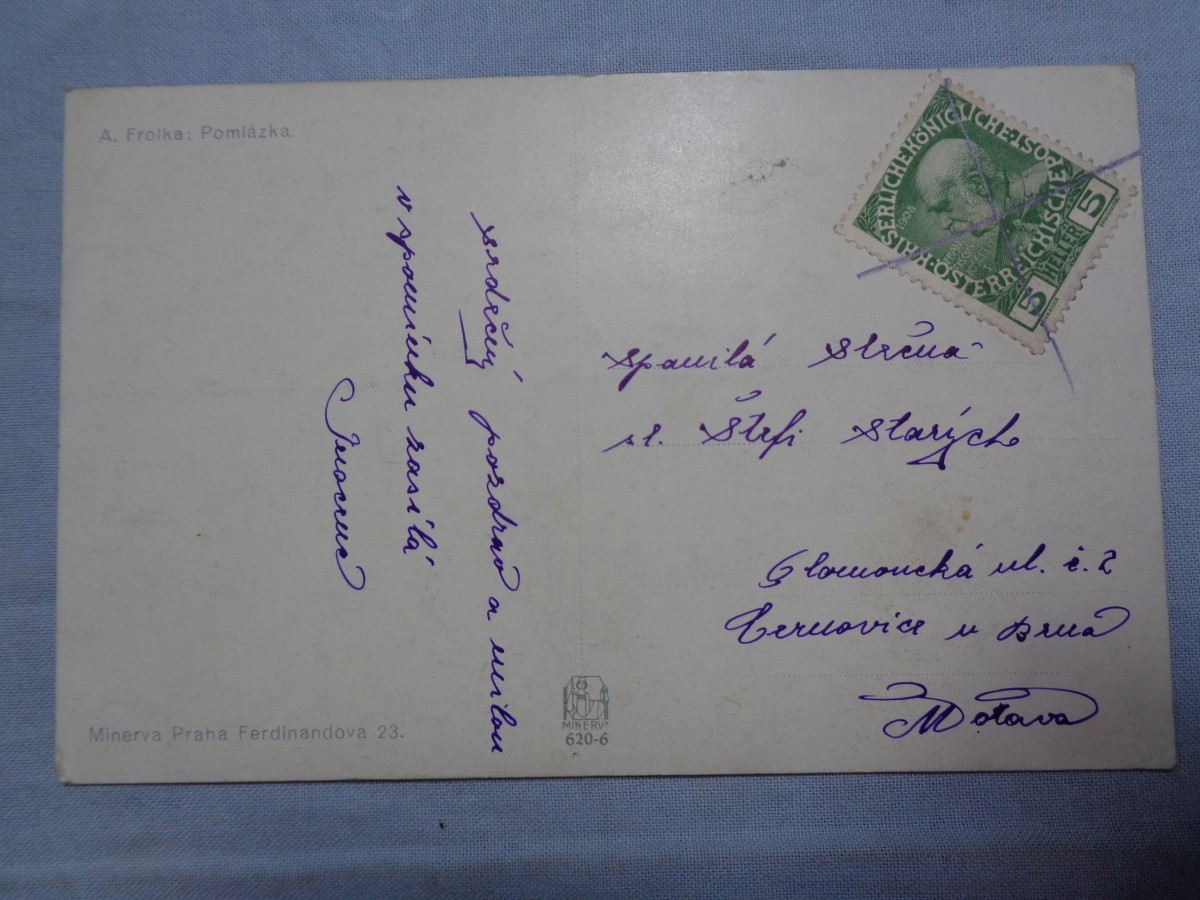 A. Frolka: Pomlázka.
srdečný pozdrav a milou
v spomínku zasílá
KAISERLICHE KÖNIGLICHE ÖSTERREICHISCHE POST
1908
5 HELLER 5
spanilá slečna
sl. Štefi Starých
Olomoucká ul. č. 2
Černovice u Brna
Morava
Minerva Praha Ferdinandova 23.
MINERVA
620-6